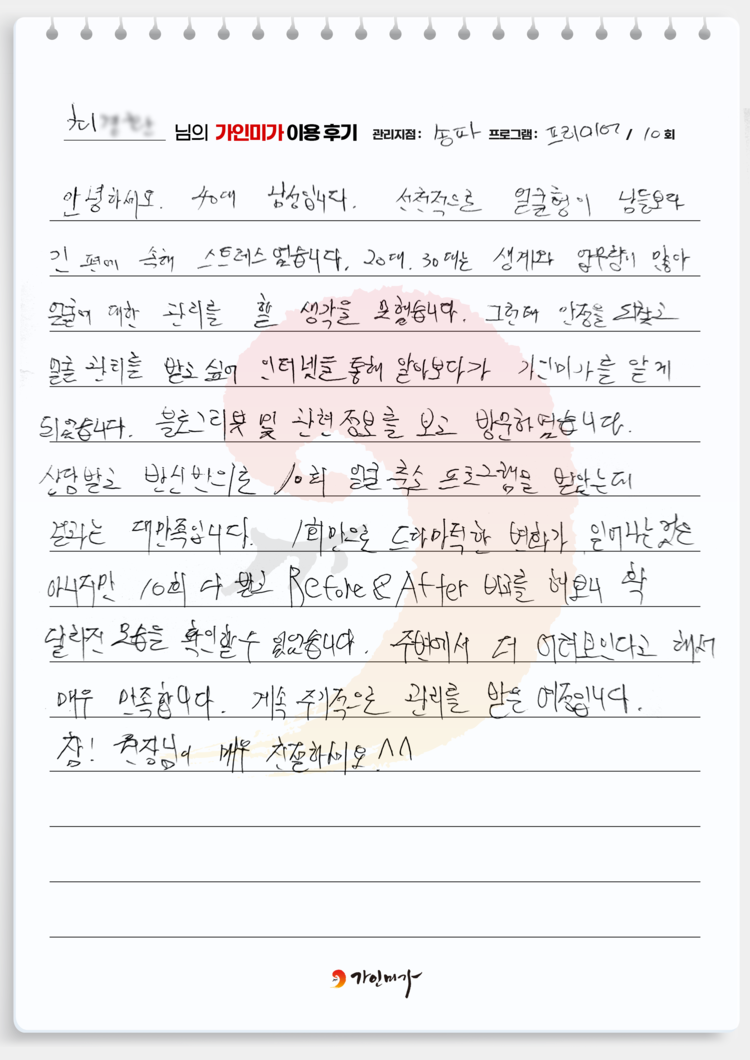 최 님의 가인미가 이용 후기 관리지점 : 송파 프로그램 : 프리미어 / 10회
안녕하세요. 40대 남성입니다. 선천적으로 얼굴형이 남들보다
긴 편에 속해 스트레스였습니다. 20대, 30대는 생계와 업무량이 많아
얼굴에 대한 관리를 할 생각을 못했습니다. 그런데 안정을 되찾고
얼굴 관리를 받고 싶어 인터넷을 통해 알아보다가 가인미가를 알게
되었습니다. 블로그리뷰 및 관련정보를 보고 방문하였습니다.
상담받고 반신반의로 10회 얼굴축소 프로그램을 받았는데
결과는 대만족입니다. 1회만으로 드라마틱한 변화가 일어나는것은
아니지만 10회 다 받고 Before & After 비교를 해보니 확
달라진 모습을 확인할수 있었습니다. 주변에서 더 어려보인다고 해서
매우 만족합니다. 계속 주기적으로 관리를 받을 예정입니다.
참! 원장님이 매우 친절하세요 ^^
가인미가